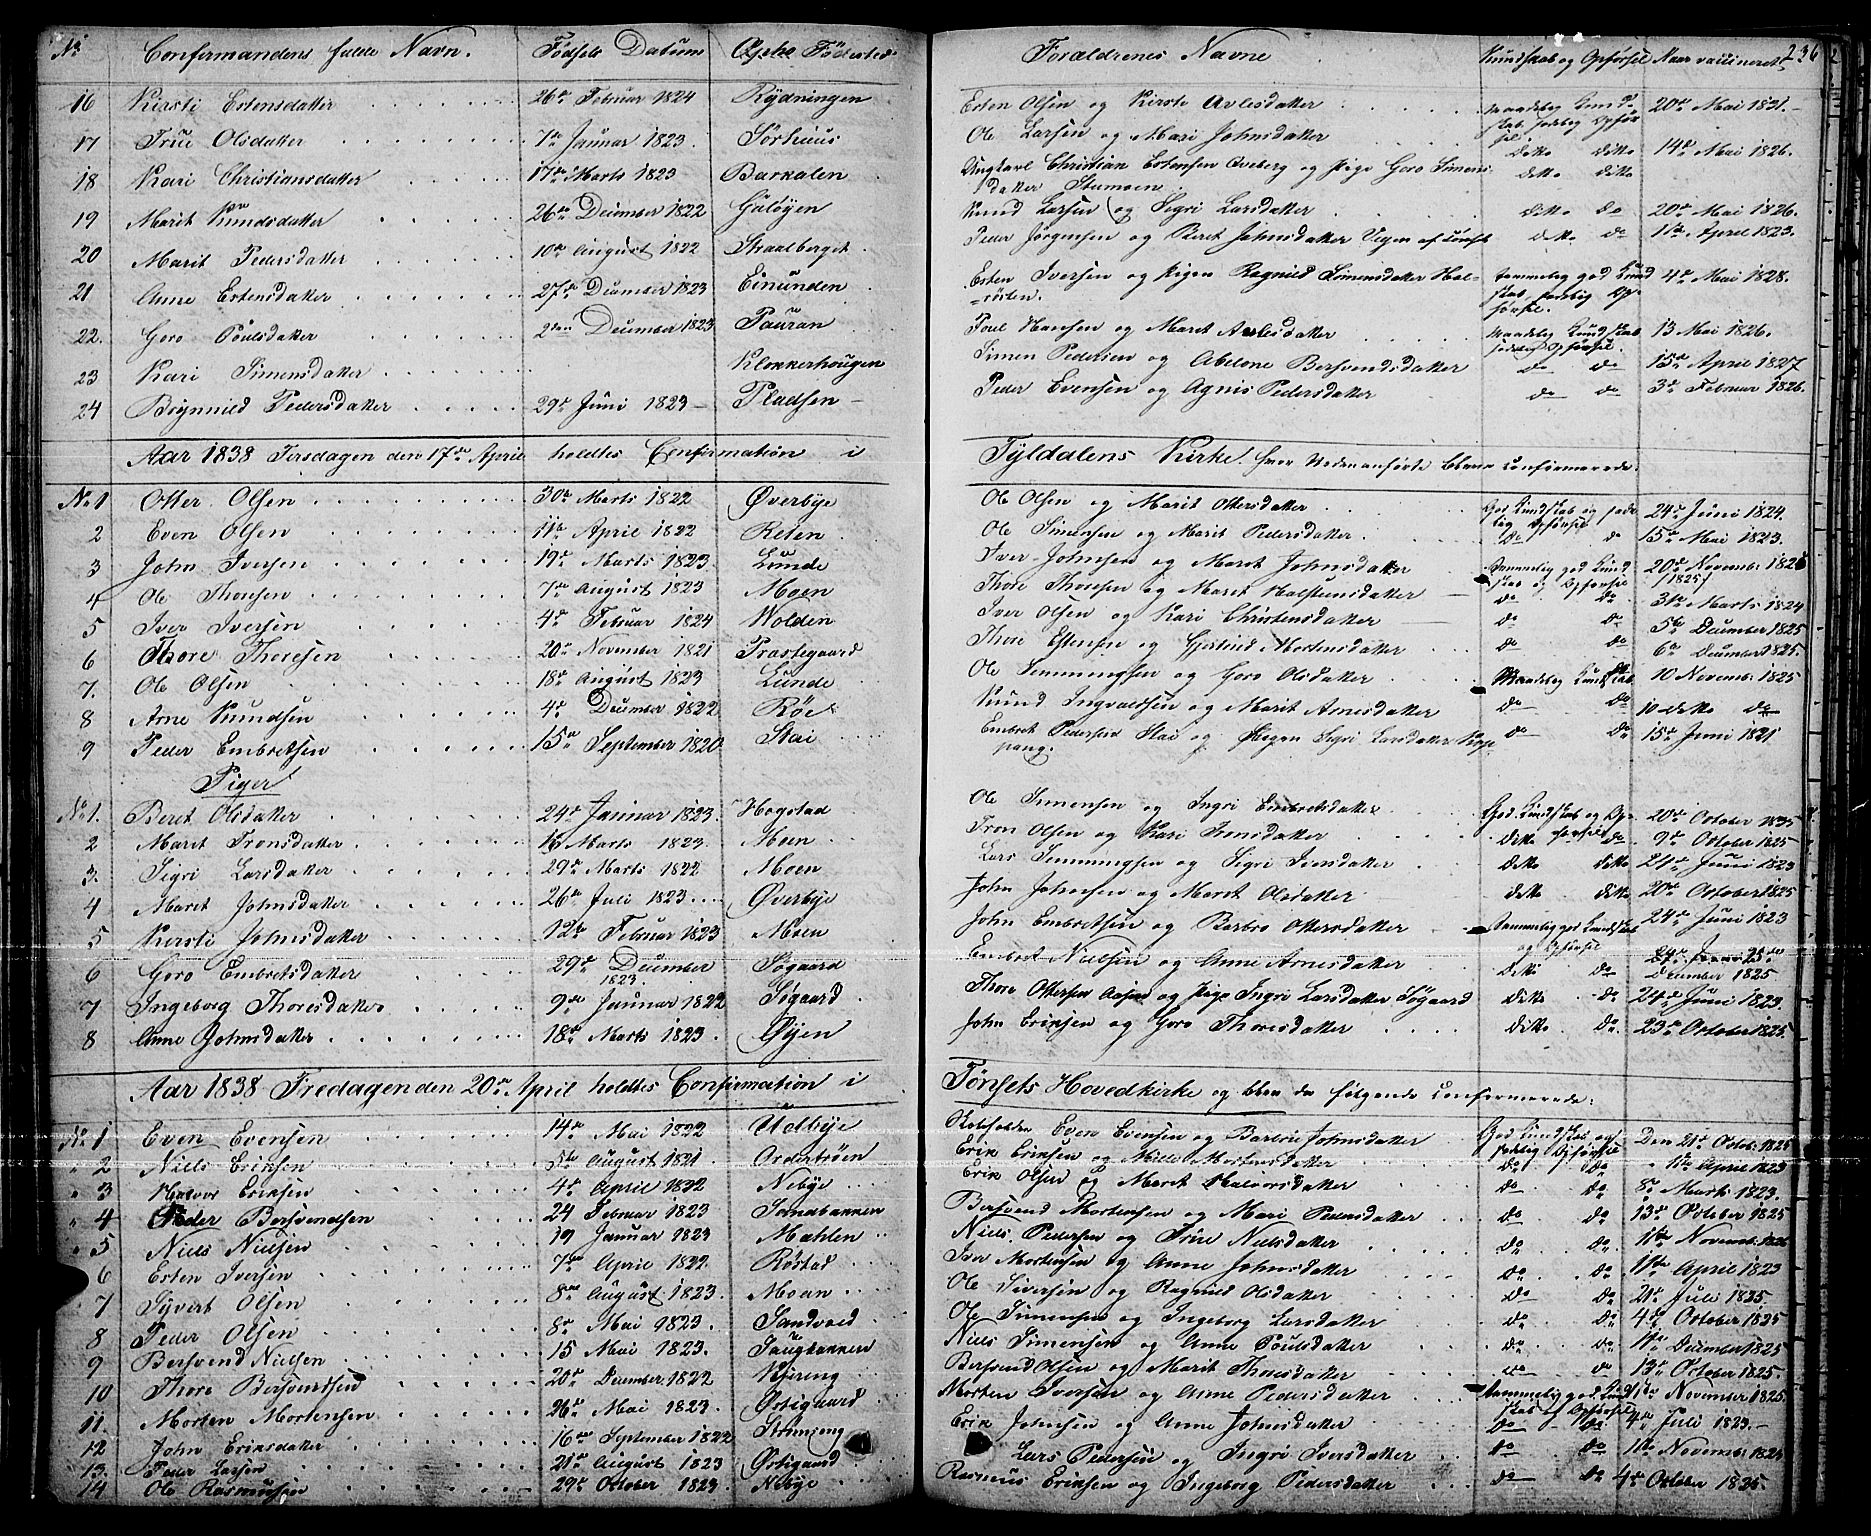 No Confirmandens fulde Navn. Fødsels Datum Fødested Forældrenes Navne Kundskab og Opførsel Naar vaccineret 236
16 Kirsti Estensdatter 26de Februar 1824 Rydningen Esten Olsen og Kirsti Avlesdatter maadelig Kundskab sædelig Opførsel 20de Mai 1831.
17 Trie Olsdatter 7de Januar 1823 Sørhuus Ole Larsen og Mari Johnsdatter ditto ditto 14de Mai 1826.
18 Kari Christiansdatter 17de Marts 1823 Barkalen Ungkarl Christian Estensen og Pige Goro Simensdatter ditto ditto
19 Marit Knudsdatter 26de December 1822 Guløyen Knud Larsen og Sigri Larsdatter ditto do 20de Mai 1826.
20 Marit Pedersdatter 10de August 1822 Straalberget Peder Jørgensen og Beret Johnsdatter ditto do 11te April 1823.
21 Anne Estensdatter 27de December 1823 Einunden Esten Iversen og Pigen Ragnild Simensdatter temmelig god Kundskab sædelig Opførsel. 4de Mai 1828.
22. Goro Poulsdatter 2den December 1823 Pauran Poul Hansen og Marit Avlesdatter maadelig Kundskab sædelig Opførsel. 13 Mai 1826.
23 Kari Simensdatter Klokkerhougen Simen Pedersen og Abelone Bersvendsdatter do do 15de April 1827
24 Brynnild Pedersdatter 29de Juni 1823 Pladsen Peder Evensen og Agnis Pedersdatter do do 3de Februar 1826.
Aar 1838 Tirsdagen den 17de April holdtes Confirmation i Tyldalens Kirke hvor Nedenanførte bleve confirmerede:
No 1 Otter Olsen 30te Marts 1822 Øverbye Ole Olsen og Marit Ottersdatter God Kundskab og sædelig Opførsel 24de Juni 1824.
2 Even Olsen 11te April 1822 Reten Ole Simensen og Marit Pedersdatter do do 15de Mai 1823.
3 John Iversen 19de Marts 1823 Lunde Iver Johnsen og Marit Johnsdatter Temmelig god Kundskab og Opførsel 20de Novembr /1825/
4 Ole Thoresen 7de August 1823 Moen Thore Thoresen og Marit Halstensdatter do do 31te Marts 1824
5 Iver Iversen 4de Februar 1824 Wolden Iver Olsen og Kari Christensdatter do do 5te December 1825
6 Thore Thoresen 20de November 1821 Præstegaard Thore Estensen og Gjertrud Mortensdatter do do 6te December 1825.
7. Ole Olsen 18de August 1823 Lunde Ole Simmingsen og Goro Olsdatter Maadelig Kundskab 10 Novembr 1825
8 Arne Knudsen 4de December 1822 Røe Knud Ingvaldsen og Marit Arnesdatter do do 10 ditto do
9 Peder Embretsen 15de September 1820 Stai Embret Pedersen Stai og Pigen Sigri Larsdatter do do 15de Juni 1821
Piger
No 1. Beret Olsdatter 24de Januar 1823. Hogstad Ole Simensen og Ingri Embretsdatter God Kundskab og Opførsel 20de October 1835
2 Marit Tronsdatter 16 Marts 1823. Moen Tron Olsen og Kari Jonsdatter ditto do 9de October 1825
3. Sigri Larsdatter 29de Marts 1822 Moen Lars Simmingsen og Sigri Jonsdatter ditto ditto 21de Juni 1823
4 Marit Johnsdatter 26de Juli 1823 Øverbye John Johnsen og Marit Olsdatter ditto ditto 20de October 1825
5 Kirsti Johnsdatter 12te Februar 1823 Moen John Embretsen og Barbro Ottersdatter Temmelig god Kundskab og Opførsel 24de Juni 1823
6 Goro Embretsdatter 29de December 1823. Søgaard Embret Nielsen og Anne Arnesdatter ditto do December 1825
7 Ingeborg Thoresdatter 9de Januar 1822 Søgaard Thore Ottersen Aasen og Pige Ingri Larsdatter Søgaard ditto do 24de Juni 1823.
8 Anne Johnsdatter 18de Marts 1823 Øyen John Eriksen og Goro Thoresdatter ditto do 23de October 1825.
Aar 1838 Fredagen den 20de April holdtes Confirmation i Tønsets Hovedkirke og bleve da følgende confirmerede:
No 1 Even Evensen 14de Mai 1822 Udbye Even Evensen og Barbro Johnsdatter God Kundskab og sædelig Opførsel Den 21de Octobr 1825
" 2 Niels Eriksen 5te August 1821 Erik Eriksen og Mille Mortensdatter do do 11te April 1823
" 3 Halvor Eriksen 4de April 1822 Nebye Erik Olsen og Marit Halvorsdatter do do 8de Marts 1823.
" 4 Peder Bersvendsen 24 Februar 1823 Bersvend Mortensen og Mari Pedersdatter do do 13de October 1825
" 5 Niels Nielsen 19 Januar 1823 Mahlen Niels Pedersen og Trine Nielsdatter do do 11te Novembr
6 Esten Iversen 7de April 1822. Røstad Iver Mortensen og Anne Johnsdatter do do 11te April 1823
7 Syvert Olsen 8de August 1823. Moen Ole Siversen og Ragnild Olsdatter do do 21de Juli 1835
8 Peder Olsen 8de Mai 1823. Sandvold Ole Simensen og Ingeborg Larsdatter do do 4de October 1825
9 Bersvend Nielsen 15 Mai 1823. Haugbakken Niels Simensen og Anne Poulsdatter do do 11te December 1825
10 Thore Bersvendsen 20de December 1822 Kjereng Bersvend Olsen og Marit Thoresdatter do do 13de October 1825.
11. Morten Mortensen 26de Mai 1823. Østigaard Morten Iversen og Anne Pedersdatter Temmelig god Kundskab og Opførsel November 1825.
12 John Eriksdatter 16de September 1822 Strømseng Erik Johnsen og Anne Johnsdatter do do 4de Juli 1823.
13. Peder Larsen 21de August 1823 Østigaard Lars Pedersen og Ingri Iversdatter do do 11te Novembr
14 Ole Rasmussen 29de October 1823. Nebye Rasmus Eriksen og Ingeborg Pedersdatter do do 4de October 1825.